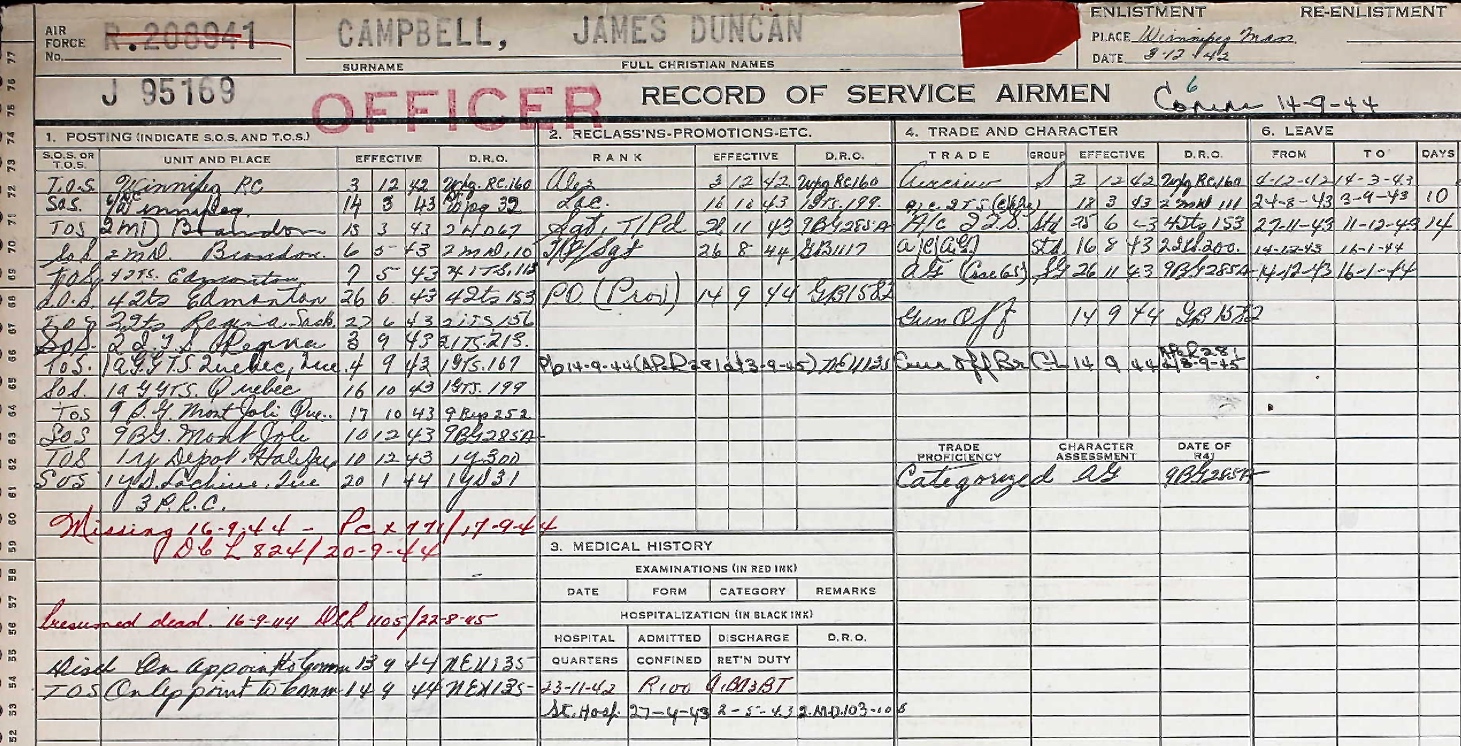 AIR FORCE No. R.208941 CAMPBELL, JAMES DUNCAN
SURNAME FULL CHRISTIAN NAMES
ENLISTMENT RE-ENLISTMENT
PLACE Winnipeg Man
DATE 3-12-42
J 95169 OFFICER RECORD OF SERVICE AIRMEN 6 14-9-44
1. POSTING (INDICATE S.O.S. AND T.O.S.)
S.O.S. OR T.O.S. UNIT AND PLACE EFFECTIVE D.R.O.
T.O.S Winnipeg RC 3 12 42 Wpg.RC.160
SOS. Winnipeg. 14 3 43 Wpg 32
TOS 2 MD Brandon 15 3 43
SoS 2 M.D. Brandon. 6 5 43 2 MD.110
TOS 4 ITS. Edmonton 7 5 43 4 ITS.113
S.O.S. 4 Its Edmonton 26 6 43 4 Its 153
TOS 2 Its Regina, Sask 27 6 43 2 ITS 156
SoS. 2 I.T.S Regina 3 9 43 2 ITS.213.
TOS. 1AGGTS. Quebec, Que. 4 9 43 1GTS.167
SoS. 1AGGTS. Quebec 16 10 43 1GTS.199
TOS 9 B.G. Mont Joli Que. 17 10 43 9 252
SOS 9BG. Mont Joli 10 12 43 9BG285A
TOS 1Y Depot, Halifax 10 12 43 1Y300
SOS 1Y D. Lachine, Que 20 1 44 1YD31
3 P.R.C.
Missing 16-9-44 - Pc x 771/17-9-44
L 824/20-9-44
Presumed dead. 16-9-44 1105/22-8-45
Disch On Appoint to Comm 13 9 44 NE1135
TOS On Appoint to Comm 14 9 44 NE1135
2. RECLASS'NS-PROMOTIONS-ETC.
RANK EFFECTIVE D.R.O.
3 12 42 Wpg RC160
Lac. 16 10 43 1GTS.199.
Sgt, T/Pd 26 11 43 9BG285A
T/F/Sgt 26 8 44 GB1117
PO (Prov) 14 9 44 GB1582
14-9-44
3. MEDICAL HISTORY
EXAMINATIONS (IN RED INK)
DATE FORM CATEGORY REMARKS
HOSPITALIZATION (IN BLACK INK)
HOSPITAL ADMITTED DISCHARGE D.R.O.
QUARTERS CONFINED RET'N DUTY
23-11-42 R100
St. Hosp. 27-4-43 2-5-43 2.M.D.103-108
4. TRADE AND CHARACTER
TRADE GROUP EFFECTIVE D.R.O.
Aircrew S 3 12 42 Wpg.RC.160
18 3 43 2 MD 111
Std 25 6 43 4Its 153
Std 16 8 43 2 200.
AG 26 11 43 9BG285A
Gun Off 14 9 44 GB1582
Gun Off Br 14 9 44
TRADE PROFICIENCY CHARACTER ASSESSMENT DATE OF R4J
Categorized AG 9BG285A
6. LEAVE
FROM TO DAYS
4-12-42 14-3-43
24-8-43 3-9-43 10
27-11-43 11-12-43 14
14-12-43 16-1-44
14-12-43 16-1-44
77
76
75
74
73
72
71
70
69
68
67
66
65
64
63
62
61
60
59
58
57
56
55
54
53
52